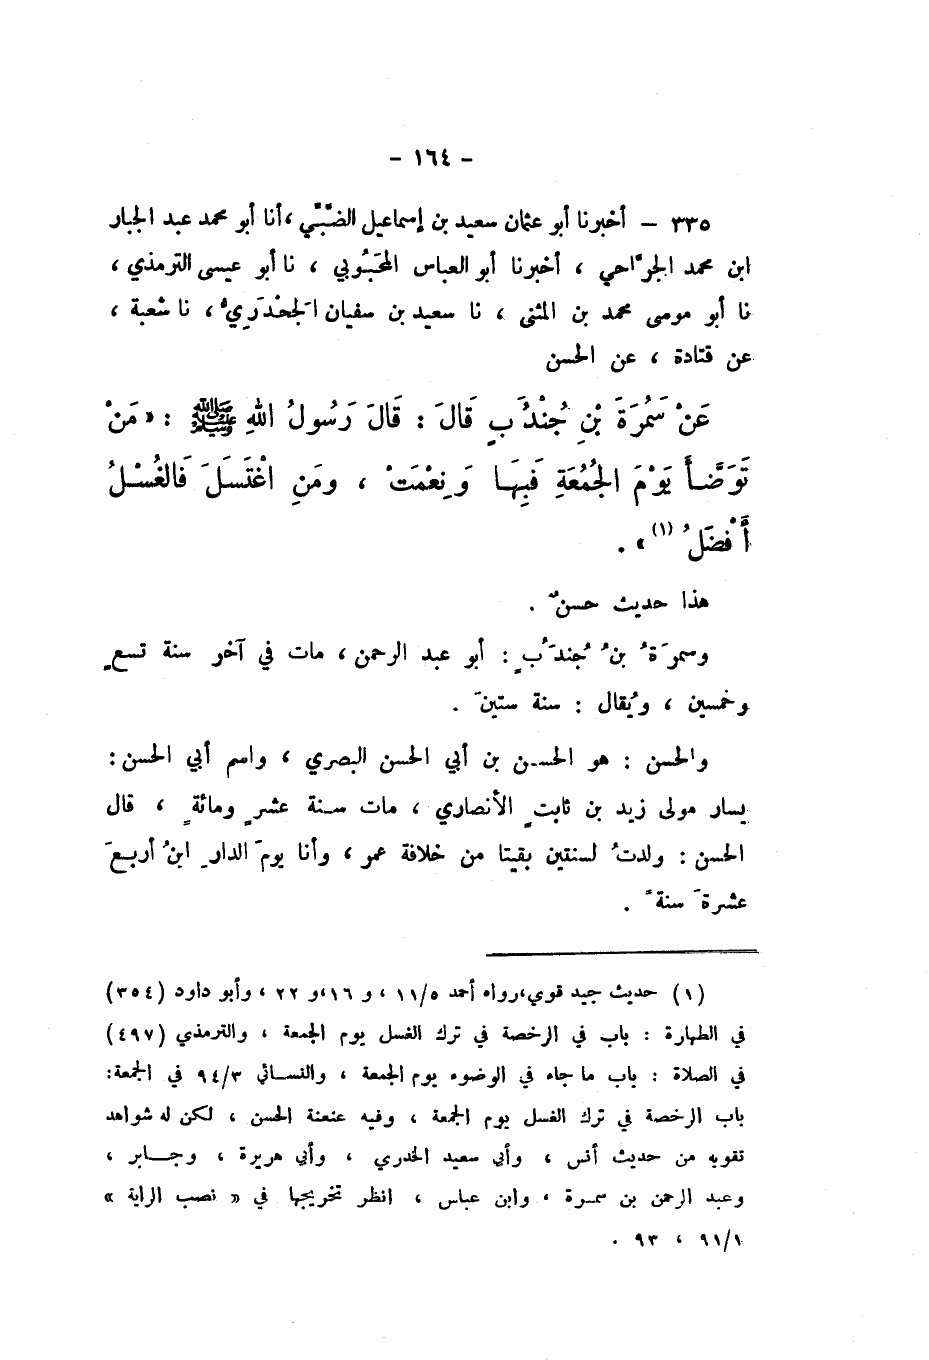 - ١٦٤ -
٣٣٥ - أخبرنا أبو عثمان سعيد بن إسماعيل الضَّبِّي ، أنا أبو محمد عبد الجبار
ابن محمد الجرَّاحي ، أخبرنا أبو العباس المحبُوبي ، نا أبو عيسى الترمذي ،
نا أبو موسى محمد بن المثنى ، نا سعيد بن سفيان الجحدَريُّ ، نا شعبة ،
عن قتادة ، عن الحسن
عَنْ سَمُرَةَ بْنِ جُنْدُبٍ قَالَ : قَالَ رَسُولُ اللهِ ﷺ : « مَنْ
تَوَضَّأَ يَوْمَ الجُمُعَةِ فَبِهَا وَنِعْمَتْ ، ومَنِ اغْتَسَلَ فَالغُسْلُ
أَفْضَلُ (١) » .
هذا حديث حسنٌ .
وسمرَةُ بنُ جُندَُبٍ : أبو عبد الرحمن ، مات في آخر سنة تسعٍ
وخمسين ، ويُقال : سنة ستينَ .
والحسن : هو الحسن بن أبي الحسن البصري ، واسم أبي الحسن :
يسار مولى زيد بن ثابتٍ الأنصاري ، مات سنة عشرٍ ومائةٍ ، قال
الحسن : ولدتُ لسنتين بقيتا من خلافة عمر ، وأنا يومَ الدارِ ابنُ أربعَ
عشرةَ سنةً .
(١) حديث جيد قوي ، رواه أحمد ١١/٥ ، و ١٦ ، و ٢٢ ، وأبو داود (٣٥٤)
في الطهارة : باب في الرخصة في ترك الغسل يوم الجمعة ، والترمذي (٤٩٧)
في الصلاة : باب ما جاء في الوضوء يوم الجمعة ، والنسائي ٩٤/٣ في الجمعة :
باب الرخصة في ترك الغسل يوم الجمعة ، وفيه عنعنة الحسن ، لكن له شواهد
تقويه من حديث أنس ، وأبي سعيد الخدري ، وأبي هريرة ، وجابر ،
وعبد الرحمن بن سمرة ، وابن عباس ، انظر تخريجها في « نصب الراية »
٩١/١ ، ٩٣ .